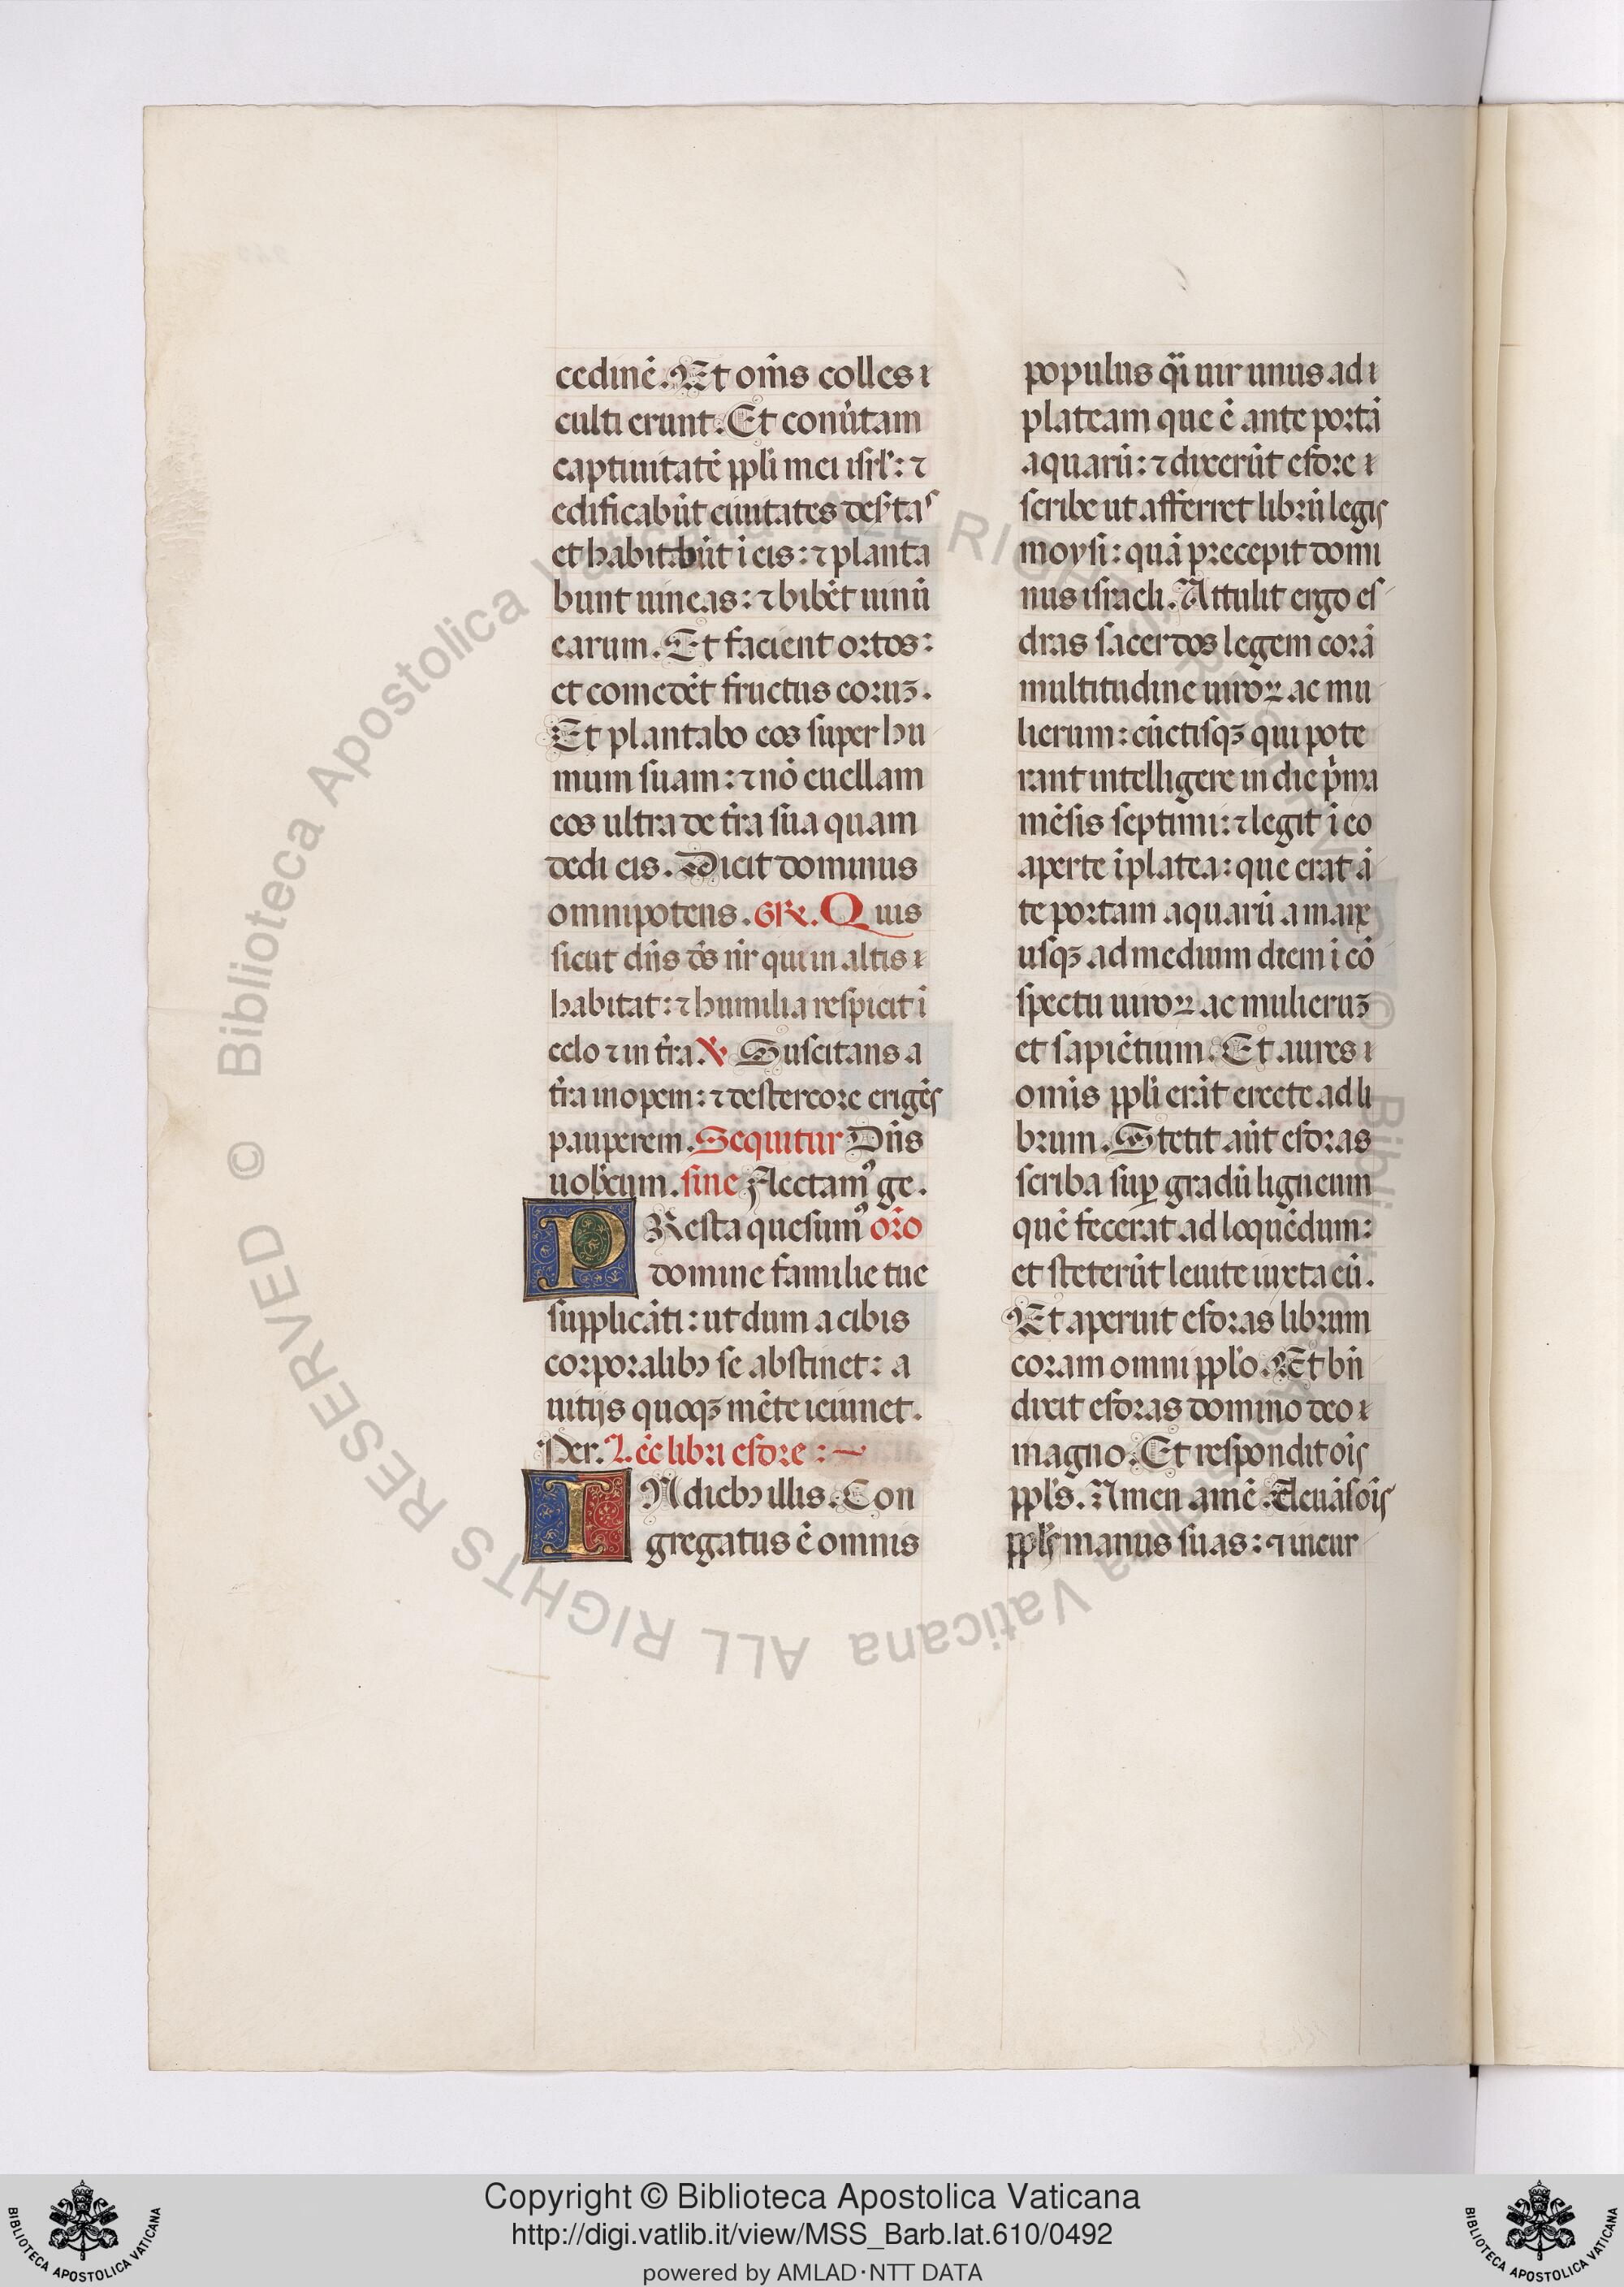 cedinē. Et om̄s colles
culti erunt. Et conūtam
captiuitatē ppli mei isrl̄: ⁊
edificabūt ciuitates des̄tas
et habitabūt ī eis: ⁊ planta
bunt uineas: ⁊ bibēt uinū
earum. Et facient ortos:
et comedēt fructus eoruꝫ.
Et plantabo eos super hu
mum suam: ⁊ nō euellam
eos ultra de t̄ra sua quam
dedi eis. Dicit dominus
omnipotens. GR̄. Quis
sicut dn̄s ds̄ nr̄ qui in altis
habitat: ⁊ humilia respicit ī
celo ⁊ in t̄ra ℣ Suscitans a
t̄ra inopem: ⁊ de stercore erigēs
pauperem. Sequitur Dn̄s
uobcum. sine Flectamꝰ ge.
PResta quesumꝰ oro
domine familie tue
supplicāti: ut dum a cibis
corporalibꝫ se abstinet: a
uitijs quoqꝫ mēte ieiunet.
Per. Lēc libri esdre :~
IN diebꝫ illis. Con
gregatus ē omnis
populus q̄i uir unus ad
plateam que ē ante portā
aquarū: ⁊ dixerūt esdre
scribe ut afferret librū legis
moysi: quā precepit domi
nus israeli. Attulit ergo es
dras sacerdos legem corā
multitudine uiroꝝ ac mu
lierum: cūctisqꝫ qui pote
rant intelligere in die p̄ma
mēsis septimi: ⁊ legit ī eo
aperte ī platea: que erat ā
te portam aquarū a mane
usqꝫ ad medium diem ī cō
spectu uiroꝝ ac mulieruꝫ
et sapiētium. Et aures
omīs ppli erāt erecte ad li
brum. Stetit aūt esdras
scriba suꝑ gradū ligneum
quē fecerat ad loquēdum:
et steterūt leuite iuxta eū.
Et aperuit esdras librum
coram omni ppl̄o. Et bn̄
dixit esdras domino deo
magno. Et respondit oīs
ppl̄s. Amen amē. Eleuās oīs
ppl̄s manus suas: ⁊ incur
© Biblioteca Apostolica Vaticana ALL RIGHTS RESERVED
© Biblioteca Apostolica Vaticana ALL RIGHTS RESERVED
Copyright © Biblioteca Apostolica Vaticana
http://digi.vatlib.it/view/MSS_Barb.lat.610/0492
powered by AMLAD·NTT DATA
BIBLIOTECA APOSTOLICA VATICANA
BIBLIOTECA APOSTOLICA VATICANA